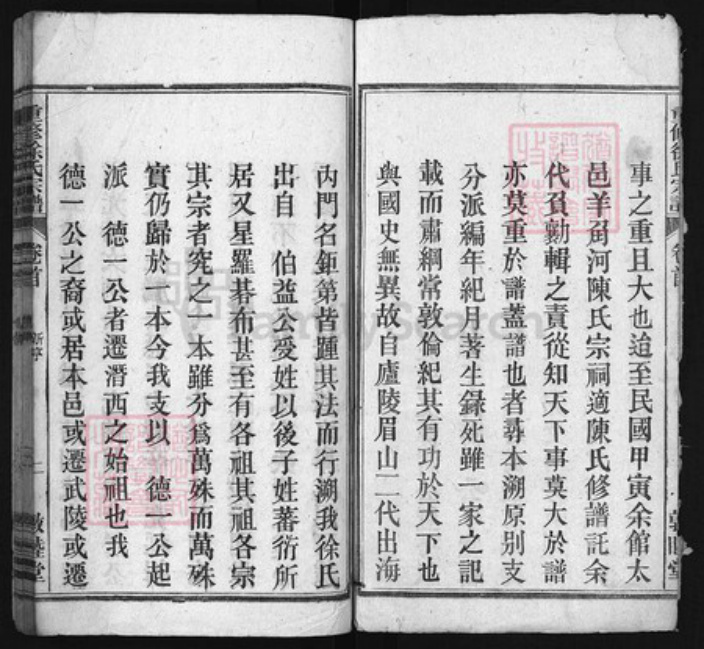 事之重且大也迨至民國甲寅余館太
邑羊角河陳氏宗祠適陳氏修譜託余
代負勷輯之責從知天下事莫大於譜
亦莫重於譜蓋譜也者尋本溯原別支
分派編年紀月著生錄死雖一家之記
載而肅綱常敦倫紀其有功於天下也
與國史無異故自廬陵眉山二代出海
內門名鉅第皆踵其法而行溯我徐氏
出自 伯益公受姓以後子姓蕃衍所
居又星羅碁布甚至有各祖其祖各宗
其宗者究之一本雖分爲萬殊而萬殊
實仍歸於一本今我支以 德一公起
派 德一公者遷潛西之始祖也我
德一公之裔或居本邑或遷武陵或遷
重修徐氏宗譜 卷首 新序 敦睦堂
FamilySearch